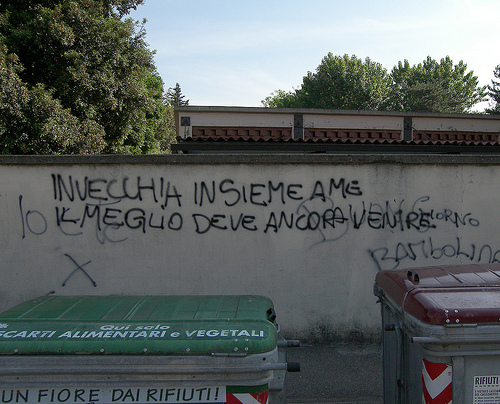 INVECCHIA INSIEME A ME
IL MEGLIO DEVE ANCORA VENIRE
IO
GIORNO
BAMBOLINA
X
Qui solo
SCARTI ALIMENTARI e VEGETALI
UN FIORE DAI RIFIUTI!
RIFIUTI